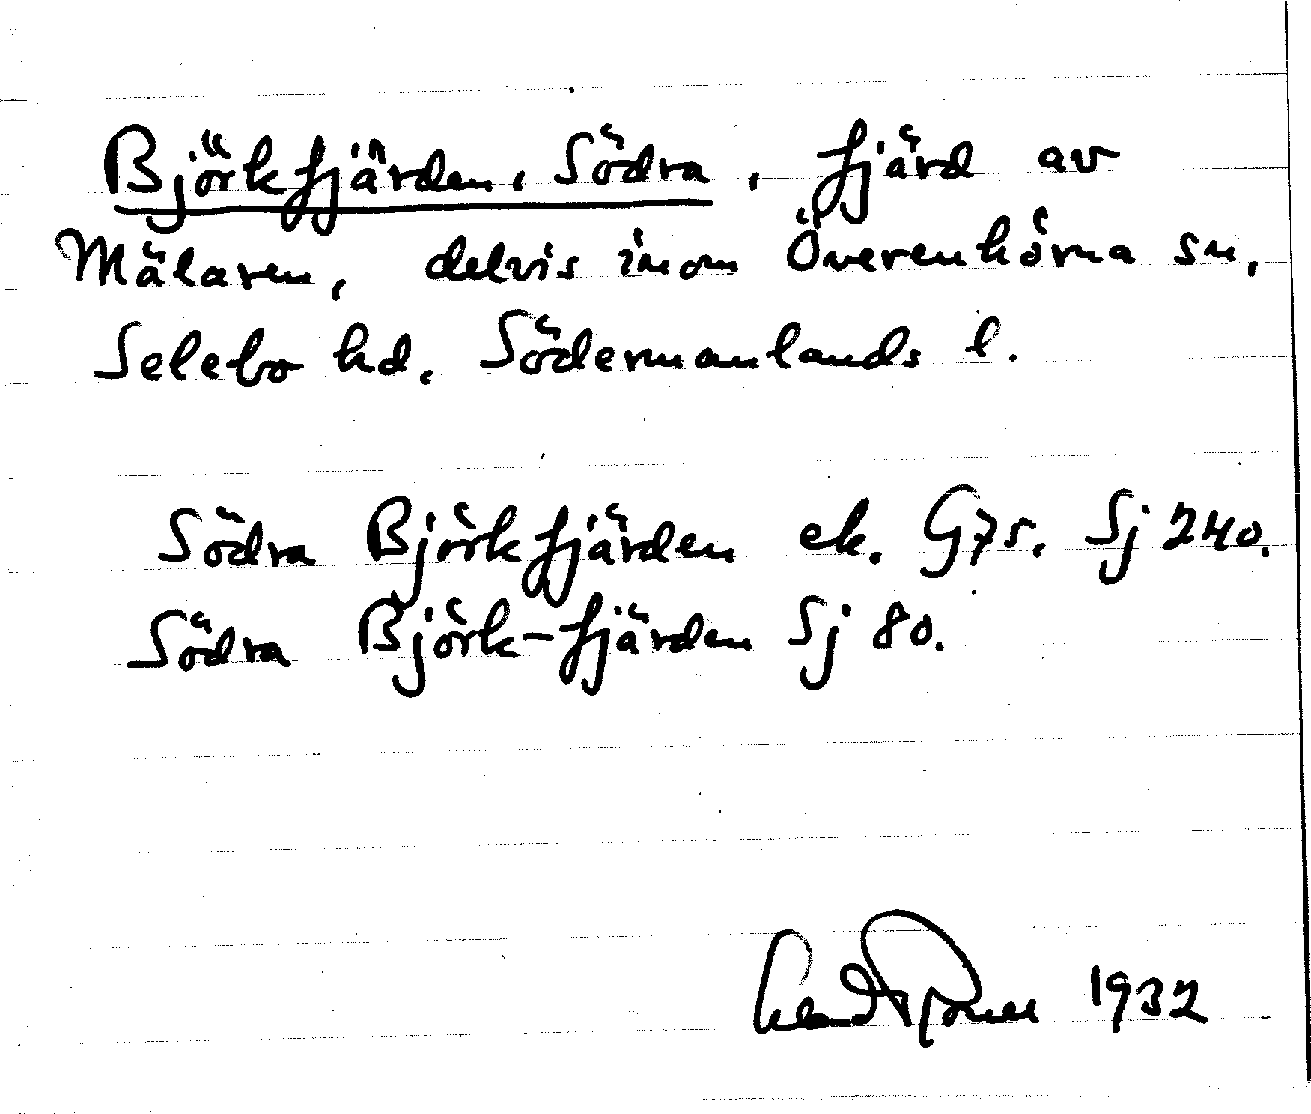 Björkfjärden, Södra, fjärd av
Mälaren, delvis inom Överenhörna sn,
Selebo hd. Södermanlands l.
Södra Björkfjärden ek. G75. Sj 240.
Södra Björk-fjärden Sj 80.
1932